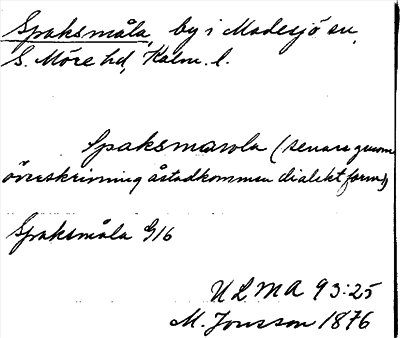 Spaksmåla, by i Madesjö sn,
S. Möre hd, Kalm. l.
Spaksmawla (senare genom
överskrivning åstadkommen dialektform)
Spaksmåla G16
ULMA 93:25
M. Jonsson 1876